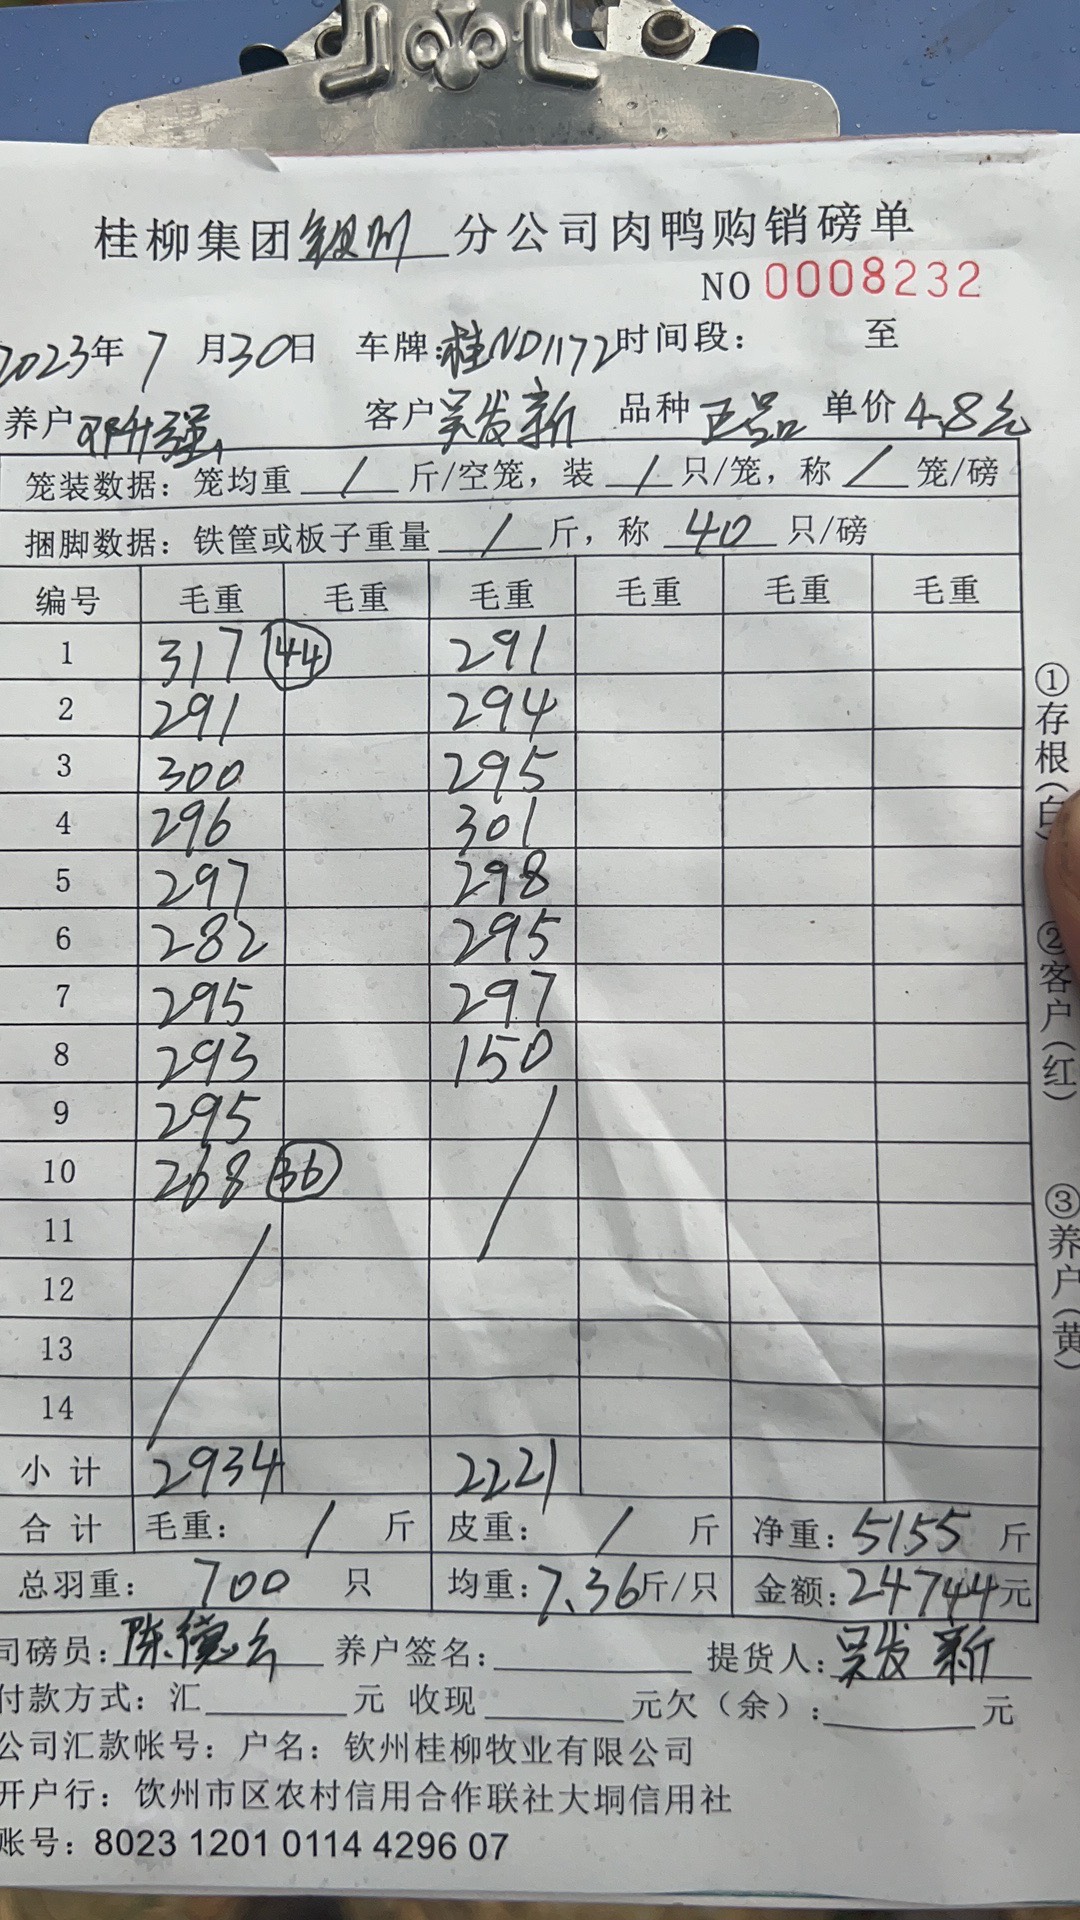 桂柳集团钦州分公司肉鸭购销磅单
NO 0008232
2023年7月30日 车牌:桂ND1172 时间段: 至
养户 强 客户 吴发新 品种 正品 单价 4.8元
笼装数据: 笼均重 / 斤/空笼, 装 / 只/笼, 称 / 笼/磅
捆脚数据: 铁筐或板子重量 / 斤, 称 40 只/磅
编号 毛重 毛重 毛重 毛重 毛重 毛重
1 317 44 291
2 291 294
3 300 295
4 296 301
5 297 298
6 282 295
7 295 297
8 293 150
9 295
10 268 36
11
12
13
14
小计 2934 2221
合计 毛重: / 斤 皮重: / 斤 净重: 5155 斤
总羽重: 700 只 均重: 7.36斤/只 金额: 24744元
司磅员: 陈德云 养户签名: 提货人: 吴发新
付款方式: 汇 元 收现 元欠(余): 元
公司汇款帐号: 户名: 钦州桂柳牧业有限公司
开户行: 饮州市区农村信用合作联社大垌信用社
账号: 8023 1201 0114 4296 07
①存根(白)
②客户(红)
③养户(黄)